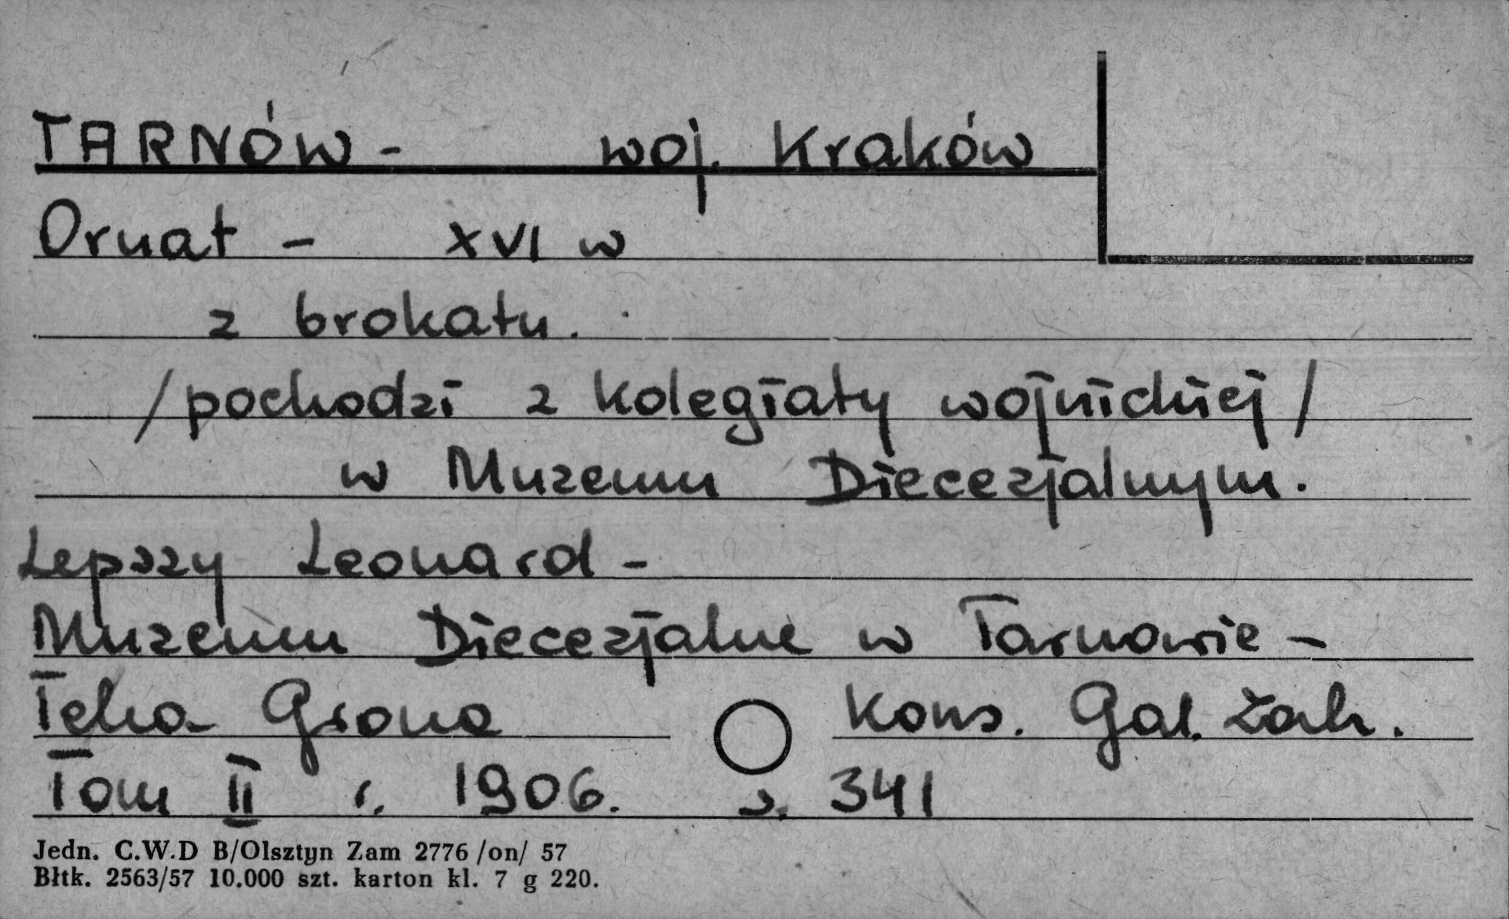 TARNÓW - woj. Kraków
Ornat - XVI w
z brokatu.
/pochodzi z kolegiaty wojnickiej/
w Muzeum Diecezjalnym.
Lepszy Leonard -
Muzeum Diecezjalne w Tarnowie -
Teka Grona Kons. Gal. Zach.
Tom II r. 1906. s. 341
Jedn. C.W.D B/Olsztyn Zam 2776 /on/ 57
Błtk. 2563/57 10.000 szt. karton kl. 7 g 220.